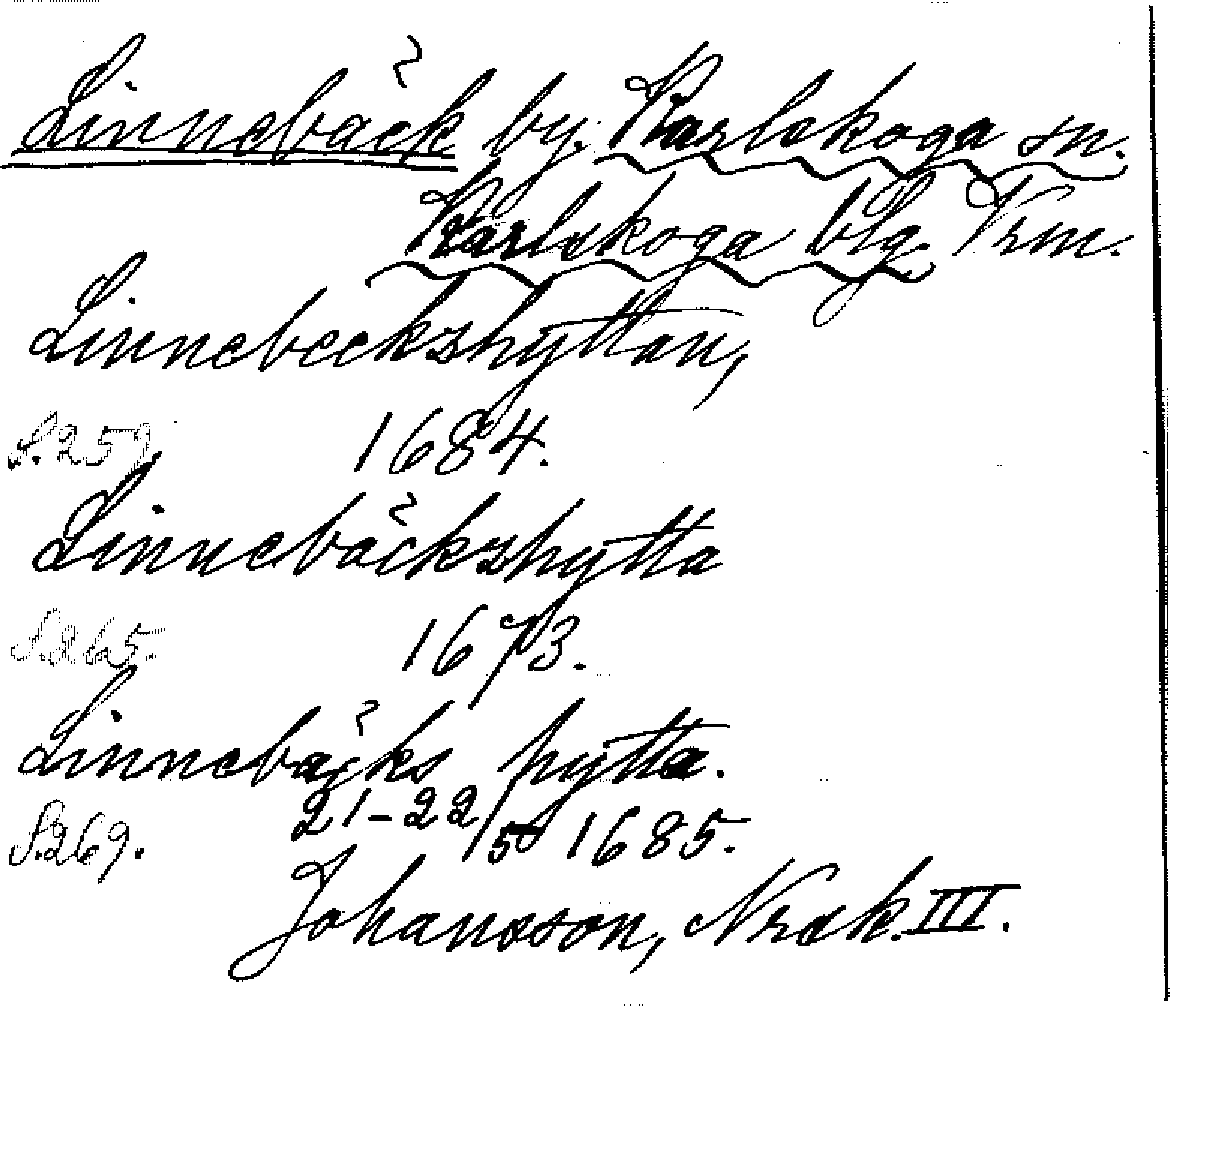 Linnebäck by. Karlskoga sn.
Karlskoga blg. Vrm.
Linnebeckzhyttan,
S. 259. 1684.
Linnebäckzhytta
S. 265. 1673.
Linnebäcks hytta.
S. 269. 21-22/5 1685.
Johansson, Nrsk. III.